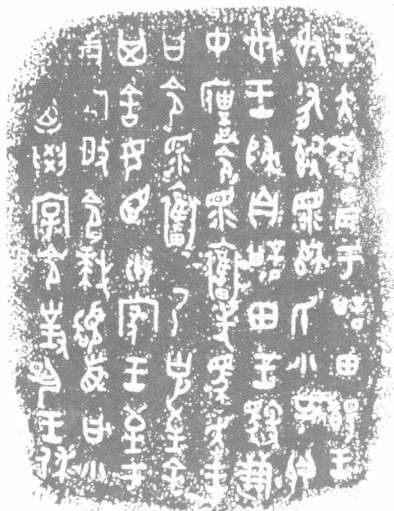 王大耤農于諆田餳王
射有𤔲眔師氏小子𨛭
射王歸自諆田王馭溓
中僕令眔奮先馬走王
曰令眔奮乃克至余
其舍女臣卅家王至于
溓宮𢼄令拜𩒨首曰小
子廼學令對揚王休